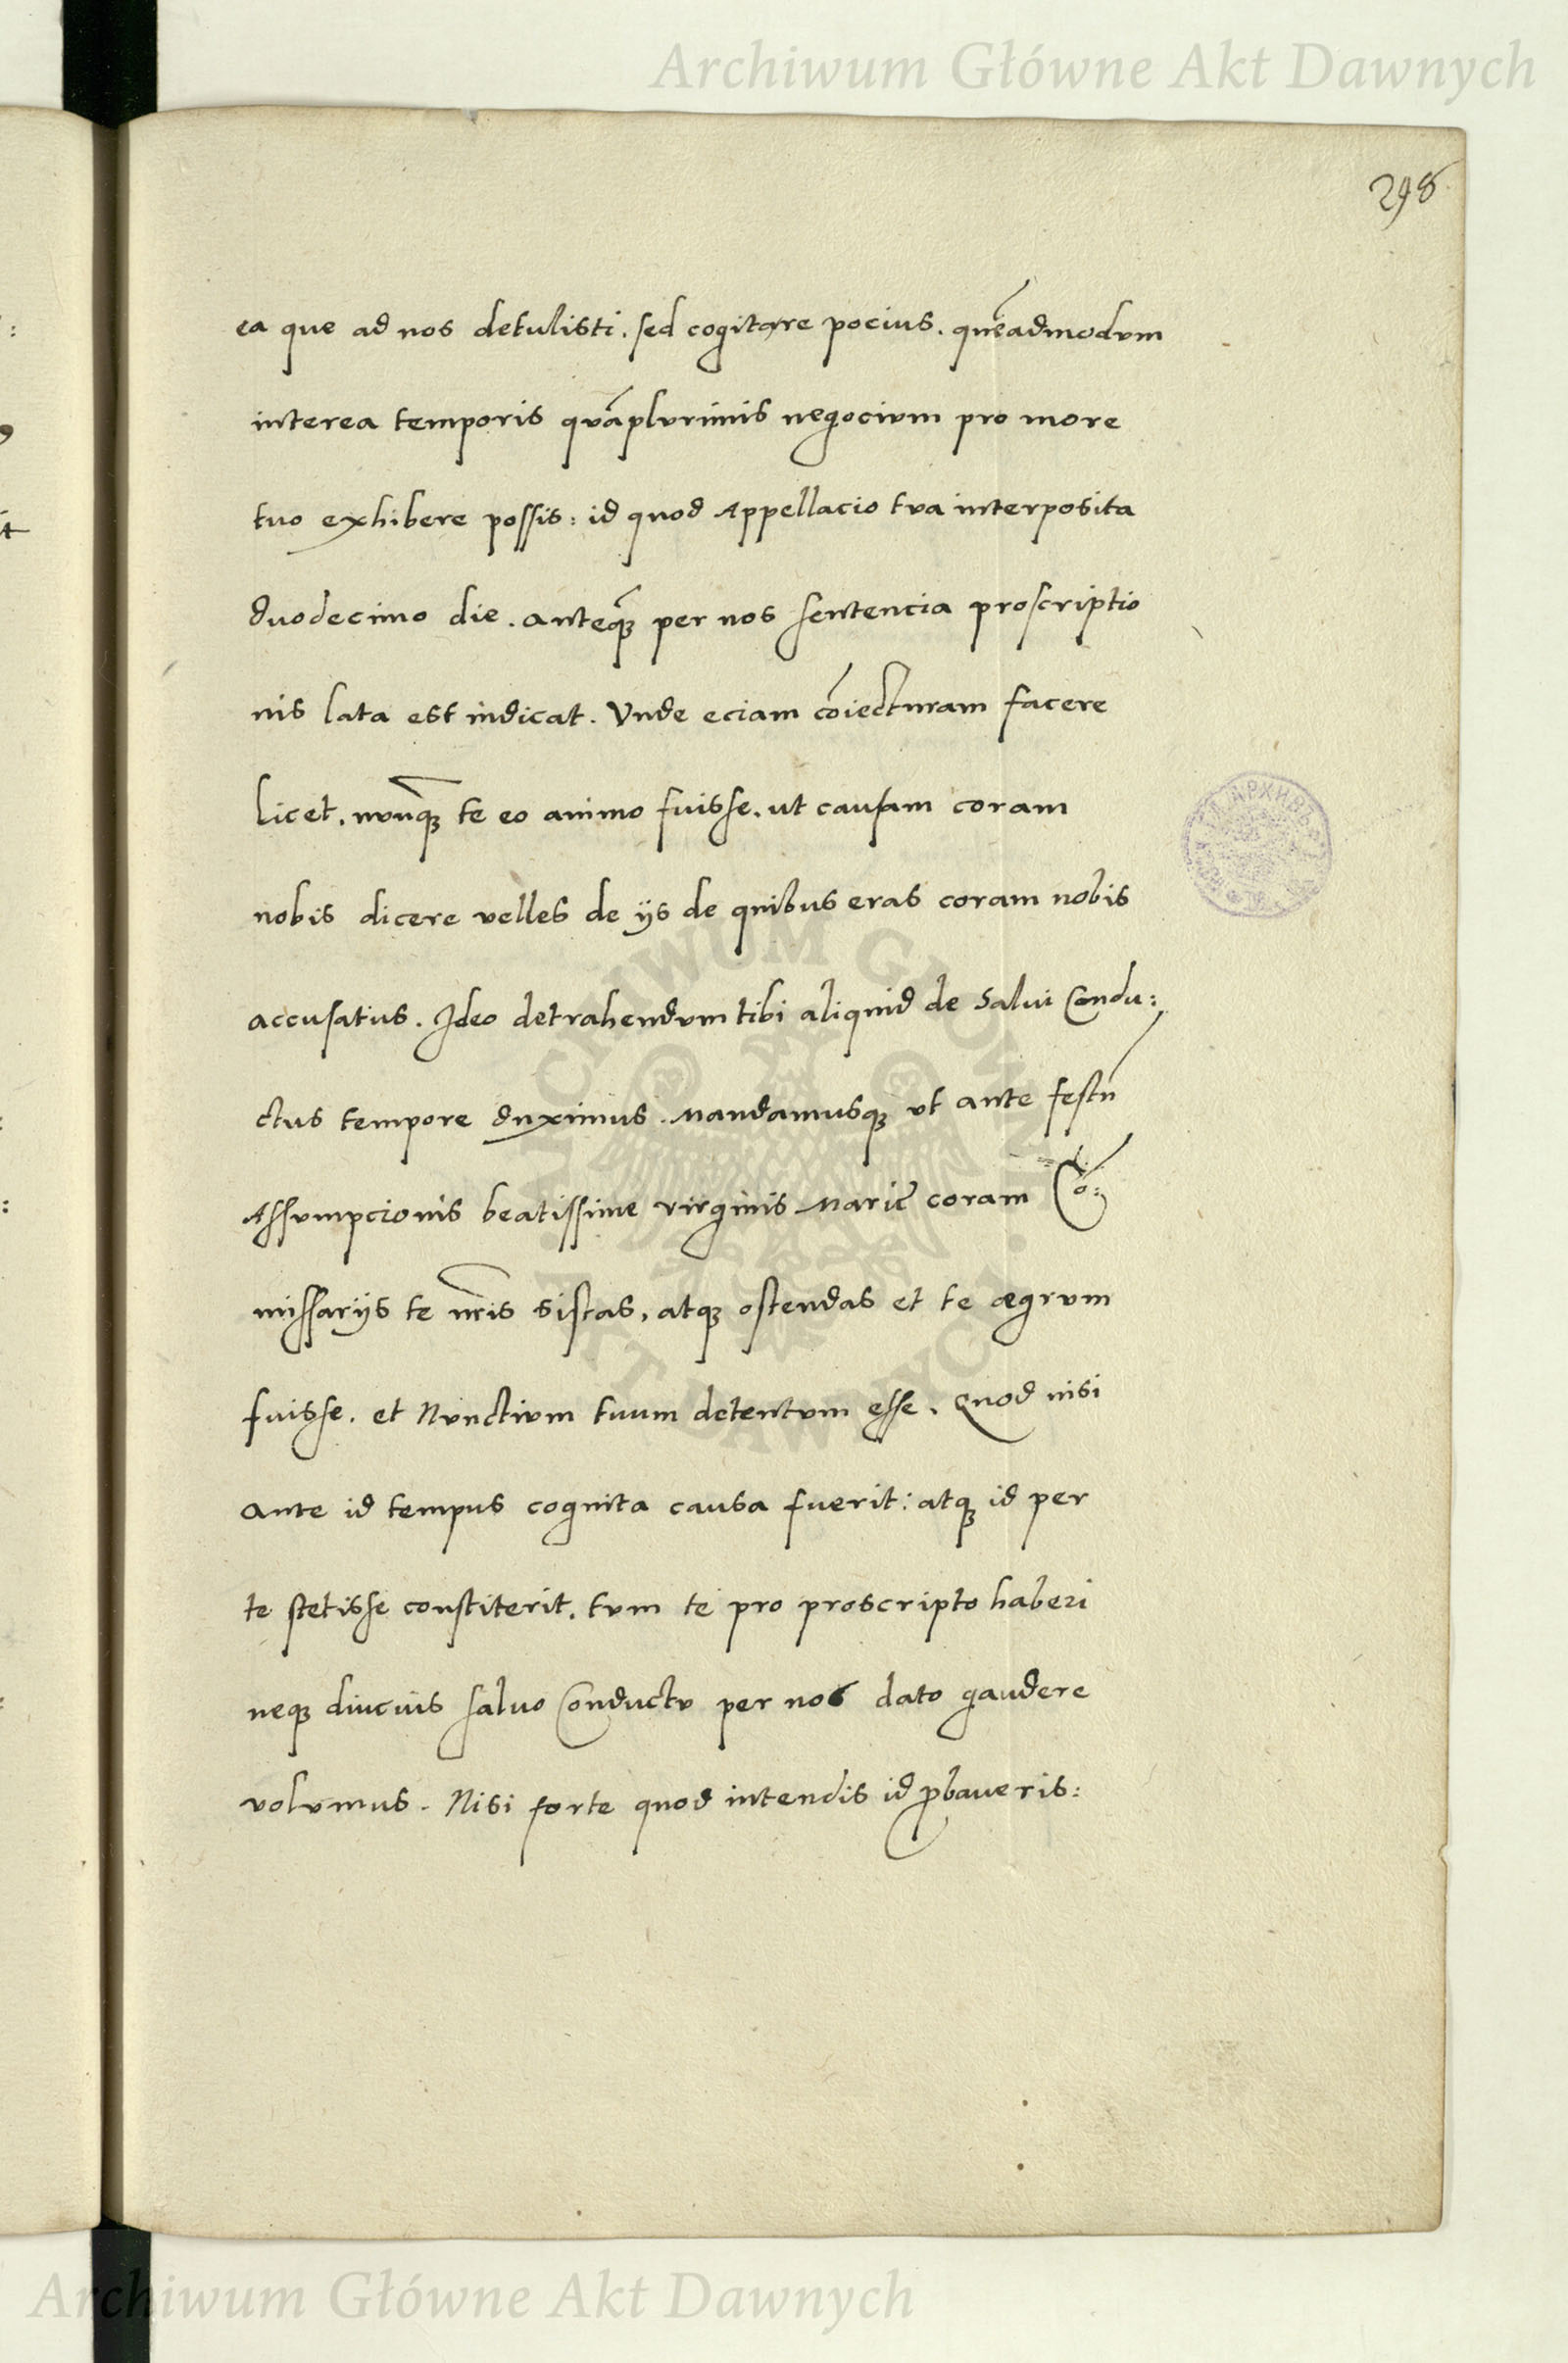 Archiwum Główne Akt Dawnych
298
ea que ad nos detulisti. sed cogitare pocius. quēadmodum
interea temporis quāplurimis negocium pro more
tuo exhibere possis: id quod Appellacio tua interposita
duodecimo die. anteq̃ꝫ per nos sentencia proscriptio
nis lata est indicat. Vnde eciam cōiecturam facere
licet. nunq̃ꝫ te eo animo fuisse. ut causam coram
nobis dicere velles de ijs de quibus eras coram nobis
accusatus. Ideo detrahendum tibi aliquid de Salui Condu:
ctus tempore duximus. Mandamusqꝫ vt ante festū
Assumpcionis beatissime virginis Marię coram Cō:
missarijs te nr̃is sistas, atqꝫ ostendas et te aegrum
fuisse. et Nunctium tuum detentum esse. Quod nisi
ante id tempus cognita causa fuerit: atqꝫ id per
te stetisse constiterit. tum te pro proscripto haberi
neqꝫ diucius saluo Conductu per nos dato gaudere
volumus. Nisi forte quod intendis id ꝓbaueris:
ARCHIWUM GŁÓWNE AKT DAWNYCH
АРХИВЪ
Archiwum Główne Akt Dawnych